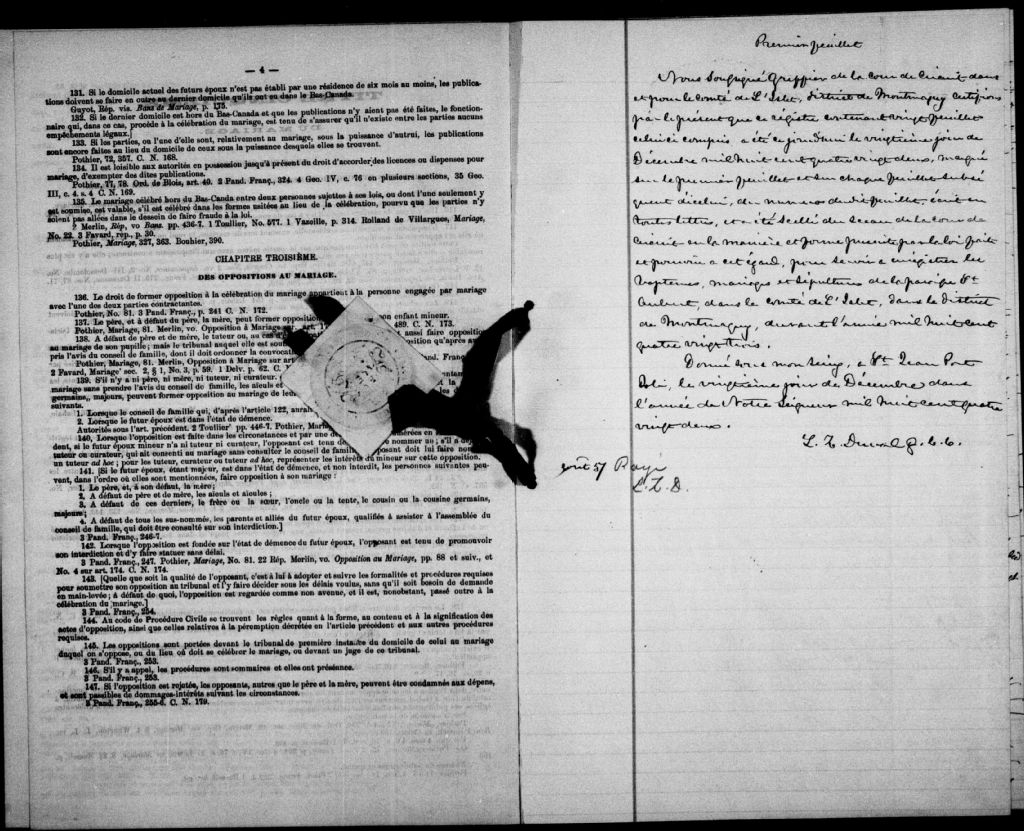 — 4 —
131. Si le domicile actuel des futurs époux n'est pas établi par une résidence de six mois au moins, les publica-
tions doivent se faire en outre au dernier domicile qu'ils ont eu dans le Bas-Canada.
Guyot, Rép. vis. Bans de Mariage, p. 175.
132. Si le dernier domicile est hors du Bas-Canada et que les publications n'y aient pas été faites, le fonction-
naire qui, dans ce cas, procède à la célébration du mariage, est tenu de s'assurer qu'il n'existe entre les parties aucuns
empêchements légaux.
133. Si les parties, ou l'une d'elle sont, relativement au mariage, sous la puissance d'autrui, les publications
sont encore faites au lieu du domicile de ceux sous la puissance desquels elles se trouvent.
Pothier, 72, 357. C. N. 168.
134. Il est loisible aux autorités en possession jusqu'à présent du droit d'accorder des licences ou dispenses pour
mariage, d'exempter des dites publications.
Pothier, 77, 78. Ord. de Blois, art. 40. 2 Pand. Franç., 324. 4 Geo. IV, c. 76 en plusieurs sections, 35 Geo.
III, c. 4. s. 4 C. N. 169.
135. Le mariage célébré hors du Bas-Canda entre deux personnes sujettes à ses lois, ou dont l'une seulement y
est soumise, est valable, s'il est célébré dans les formes usitées au lieu de la célébration, pourvu que les parties n'y
soient pas allées dans le dessein de faire fraude à la loi.
7 Merlin, Rép, vo Bans. pp. 436-7. 1 Toullier, No. 577. 1 Vazeille, p. 314. Rolland de Villargues, Mariage,
No. 22. 3 Favard, rép., p. 30.
Pothier, Mariage, 327, 363. Bouhier, 390.
CHAPITRE TROISIÈME.
DES OPPOSITIONS AU MARIAGE.
136. Le droit de former opposition à la célébration du mariage appartient à la personne engagée par mariage
avec l'une des deux parties contractantes.
Pothier, No. 81. 3 Pand. Franç., p. 241 C. N. 172.
137. Le père, et à défaut du père, la mère, peut former opposition on enfant mineur.
Pothier, Mariage, 81. Merlin, vo. Opposition à Mariage 489. C. N. 173.
138. A défaut de père et de mère, le tuteur ou, au cas aussi faire opposition
au mariage de son pupille; mais le tribunal auquel elle est sou position qu'après a
pris l'avis du conseil de famille, dont il doit ordonner la convocat
Pothier, Mariage, 81. Merlin, Opposition à Mariage sur art and. Franç
2 Favard, Mariage sec. 2, § 1, No. 3, p. 59. 1 Delv. p. 62. C.
139. S'il n'y a ni père, ni mère, ni tuteur, ni curateur,
mariage sans prendre l'avis du conseil de famille, les aïeuls et
germains, majeurs, peuvent former opposition au mariage de leu
suivants.
1. Lorsque le conseil de famille qui, d'après l'article 122, aurai
2. Lorsque le futur époux est dans l'état de démence.
Autorités sous l'art. précédent. 2 Toullier pp. 446-7. Pothier, Mar
140. Lorsque l'opposition est faite dans les circonstances et par une de
dent, si le futur époux mineur n'a ni tuteur ni curateur, l'opposant est tenu de nommer un; s'il a dé
tuteur ou curateur, qui ait consenti au mariage sans consulter le conseil de famil posant doit lui faire nom
un tuteur ad hoc; pour les tuteur, curateur ou tuteur ad hoc, représenter les intérêts du mineur sur cette opposition.
141. [Si le futur époux, étant majeur, est dans l'état de démence, et non interdit, les personnes suivantes peu-
vent, dans l'ordre où elles sont mentionnées, faire opposition à son mariage:
1. Le père, et, à son défaut, la mère;
2. A défaut de père et de mère, les aïeuls et aïeules;
3. A défaut de ces derniers, le frère ou la sœur, l'oncle ou la tente, le cousin ou la cousine germains,
majeurs;
4. A défaut de tous les sus-nommés, les parents et alliés du futur époux, qualifiés à assister à l'assemblée du
conseil de famille, qui doit être consulté sur son interdiction.]
3 Pand. Franç., 246-7.
142. Lorsque l'opposition est fondée sur l'état de démence du futur époux, l'opposant est tenu de promouvoir
son interdiction et d'y faire statuer sans délai.
3 Pand. Franç., 247. Pothier, Mariage, No. 81. 22 Rép. Merlin, vo. Opposition au Mariage, pp. 88 et suiv., et
No. 4 sur art. 174. C. N. 174.
143. [Quelle que soit la qualité de l'opposant, c'est à lui à adopter et suivre les formalités et procédures requises
pour soumettre son opposition au tribunal et l'y faire décider sous les délais voulus, sans qu'il soit besoin de demande
en main-levée; à défaut de quoi, l'opposition est regardée comme non avenue, et il est, nonobstant, passé outre à la
célébration du mariage.]
3 Pand. Franç., 254.
144. Au code de Procédure Civile se trouvent les règles quant à la forme, au contenu et à la signification des
actes d'opposition, ainsi que celles relatives à la péremption décrétée en l'article précédent et aux autres procédures
requises.
145. Les oppositions sont portées devant le tribunal de première instance du domicile de celui au mariage
duquel on s'oppose, ou du lieu où doit se célébrer le mariage, ou devant un juge de ce tribunal.
3 Pand. Franç., 253.
146. S'il y a appel, les procédures sont sommaires et elles ont préséance.
3 Pand. Franç., 253.
147. Si l'opposition est rejetée, les opposants, autres que le père et la mère, peuvent être condamnés aux dépens,
et sont passibles de dommages-intérêts suivant les circonstances.
3 Pand. Franç., 255-6. C. N. 179.
Premier feuillet
Nous Soussigné Greffier de la cour de Circuit dans
et pour le comté de L'Islet, District de Montmagny certifions
par le présent que ce régistre contenant vingt feuillets
celui ci compris a été ce jourd'hui le vingtième jour de
Décembre mil huit cent quatre vingt deux, marqué
sur le premier feuillet et sur chaque feuillet subsé
quent d'icelui, du numero du dit feuillet, écrit en
toutes lettres, et a été Scellé du Sceau de la cour de
Circuit en la manière et forme prescrite par la loi faite
et pourvue a cet égard, pour servir a enrégistrer les
Baptêmes, mariages et sépultures de la paroisse St
Aubert, dans le comté de L'Islet, dans le District
de Montmagny, durant l'année mil huit cent
quatre vingt trois.
Donné sous mon seing, a St. Jean Port
Joli, le vingtième jour de Décembre dans
l'année de Notre Seigneur mil huit cent quatre
vingt deux.
L. Z. Duval g. c. c.
57 Rayé
L. Z. D.